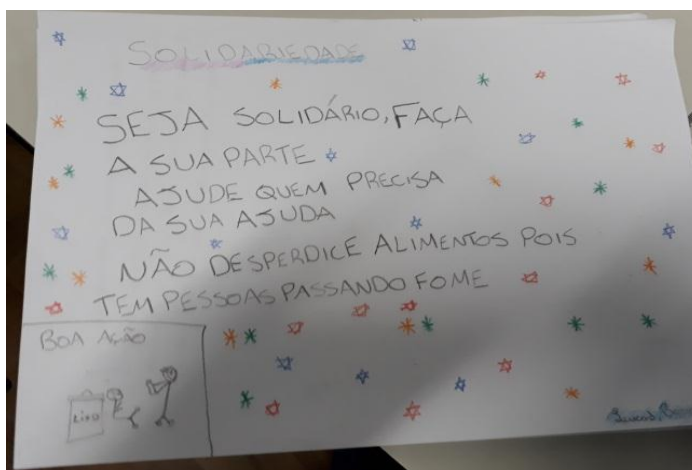 SOLIDARIEDADE
SEJA SOLIDÁRIO, FAÇA
A SUA PARTE
AJUDE QUEM PRECISA
DA SUA AJUDA
NÃO DESPERDICE ALIMENTOS POIS
TEM PESSOAS PASSANDO FOME
BOA AÇÃO
LIXO